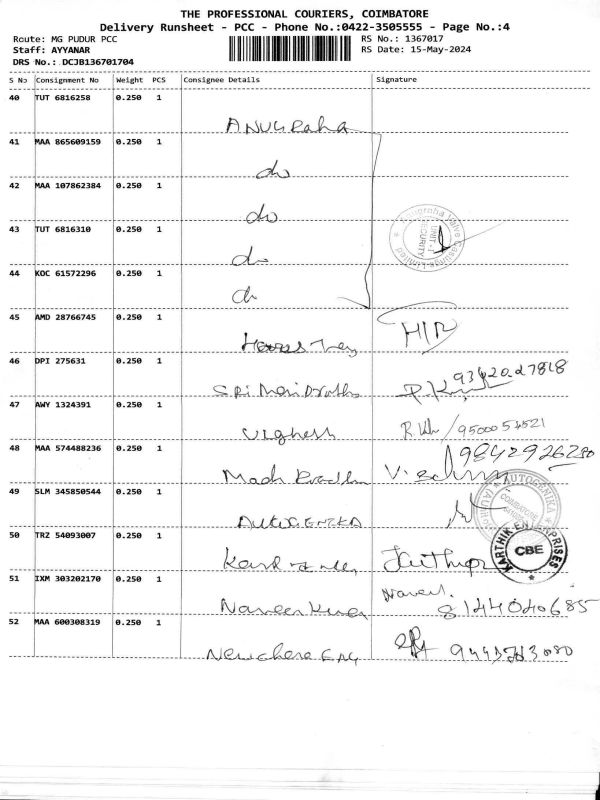 THE PROFESSIONAL COURIERS, COIMBATORE
Delivery Runsheet - PCC - Phone No.:0422-3505555 - Page No.:4
Route: MG PUDUR PCC RS No.: 1367017
Staff: AYYANAR RS Date: 15-May-2024
DRS No.: DCJB136701704
S No Consignment No Weight PCS Consignee Details Signature
40 TUT 6816258 0.250 1
ANUGRaha
41 MAA 865609159 0.250 1
do
42 MAA 107862384 0.250 1
do
Anugraha Valve Castings Limited
UNIT-I
SECURITY
43 TUT 6816310 0.250 1
do
44 KOC 61572296 0.250 1
do
45 AMD 28766745 0.250 1
46 DPI 275631 0.250 1
47 AWY 1324391 0.250 1
48 MAA 574488236 0.250 1
9842926280
49 SLM 345850544 0.250 1
AUTOGENIKA
COIMBATORE
50 TRZ 54093007 0.250 1
KARTHIK ENTERPRISES
CBE
51 IXM 303202170 0.250 1
Naveen Kumar
8144040685
52 MAA 600308319 0.250 1